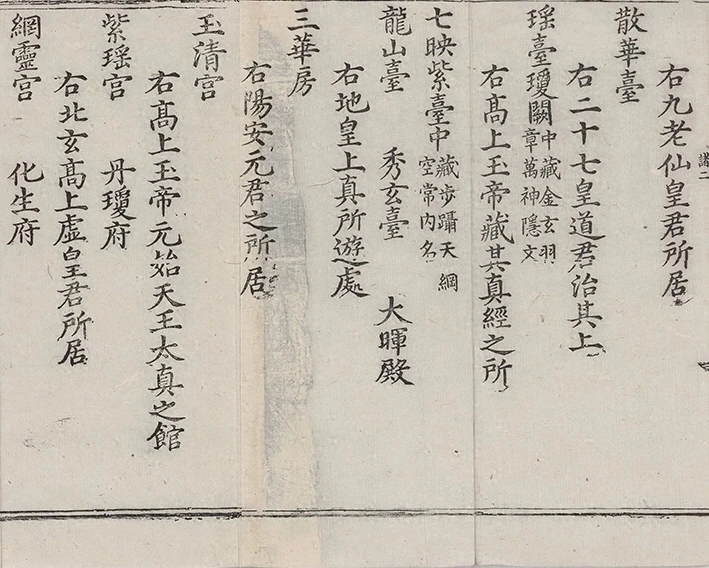 右九老仙皇君所居
散華臺
右二十七皇道君治其上
瑶臺瓊闕中藏金玄羽
章萬神隱文
右髙上玉帝藏其真經之所
七映紫臺中藏步躡天綱
空常内名
龍山臺 秀玄臺 大暉殿
右地皇上真所遊之處
三華房
右陽安元君之所居
玉清宫
右髙上玉帝元始天王太真之館
紫瑶宫 丹瓊府
右北玄髙上虚皇君所居
網靈宫 化生府